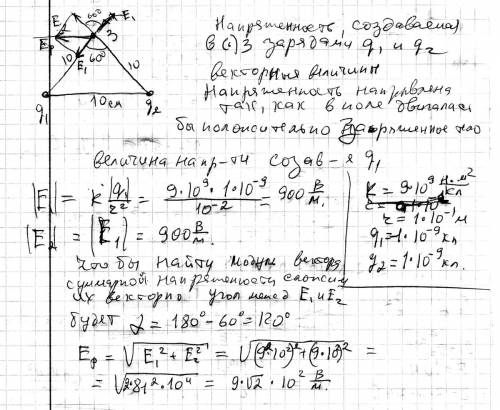 E₂ 60° E₁
Eр 3
10 60° 10
E₁
q₁ 10см q₂
Напряженность, создаваемая
в (·) 3 зарядами q₁ и q₂
векторные величины
Напряженность направлена
так, как в поле двигалась
бы положительно заряженное
величина напр-ти создав-я q₁
|E₁| = k |q₁|/r² = 9·10⁹·1·10⁻⁹/10⁻² = 900 В/м.
|E₂| = |E₁| = 900 В/м.
k = 9·10⁹ Н·м²/Кл
r = 1·10⁻¹ м
q₁ = 1·10⁻⁹ кл
q₂ = 1·10⁻⁹ кл.
Что бы найти модуль вектора
суммарной напряженности сложим
их векторно угол между E₁ и E₂
будет α = 180° - 60° = 120°
Eр = √(E₁² + E₂²) = √((9·10²)² + (9·10)²) =
= √(2·81²·10⁴) = 9·√2 · 10² В/м.